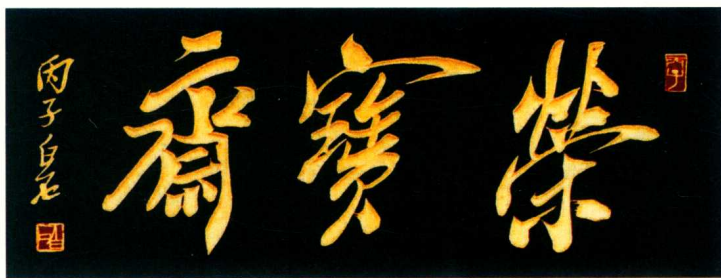 榮寶齋
丙子白石